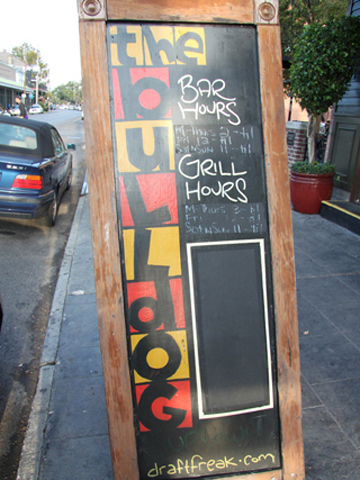 the
BULLdOG
BAR
HOURS
M-Thurs 2-til
Fri 12-til
Sat/Sun 11-til
GRILL
HOURS
M-Thurs 3-til
Fri
Sat/Sun 11-til
draftfreak.com